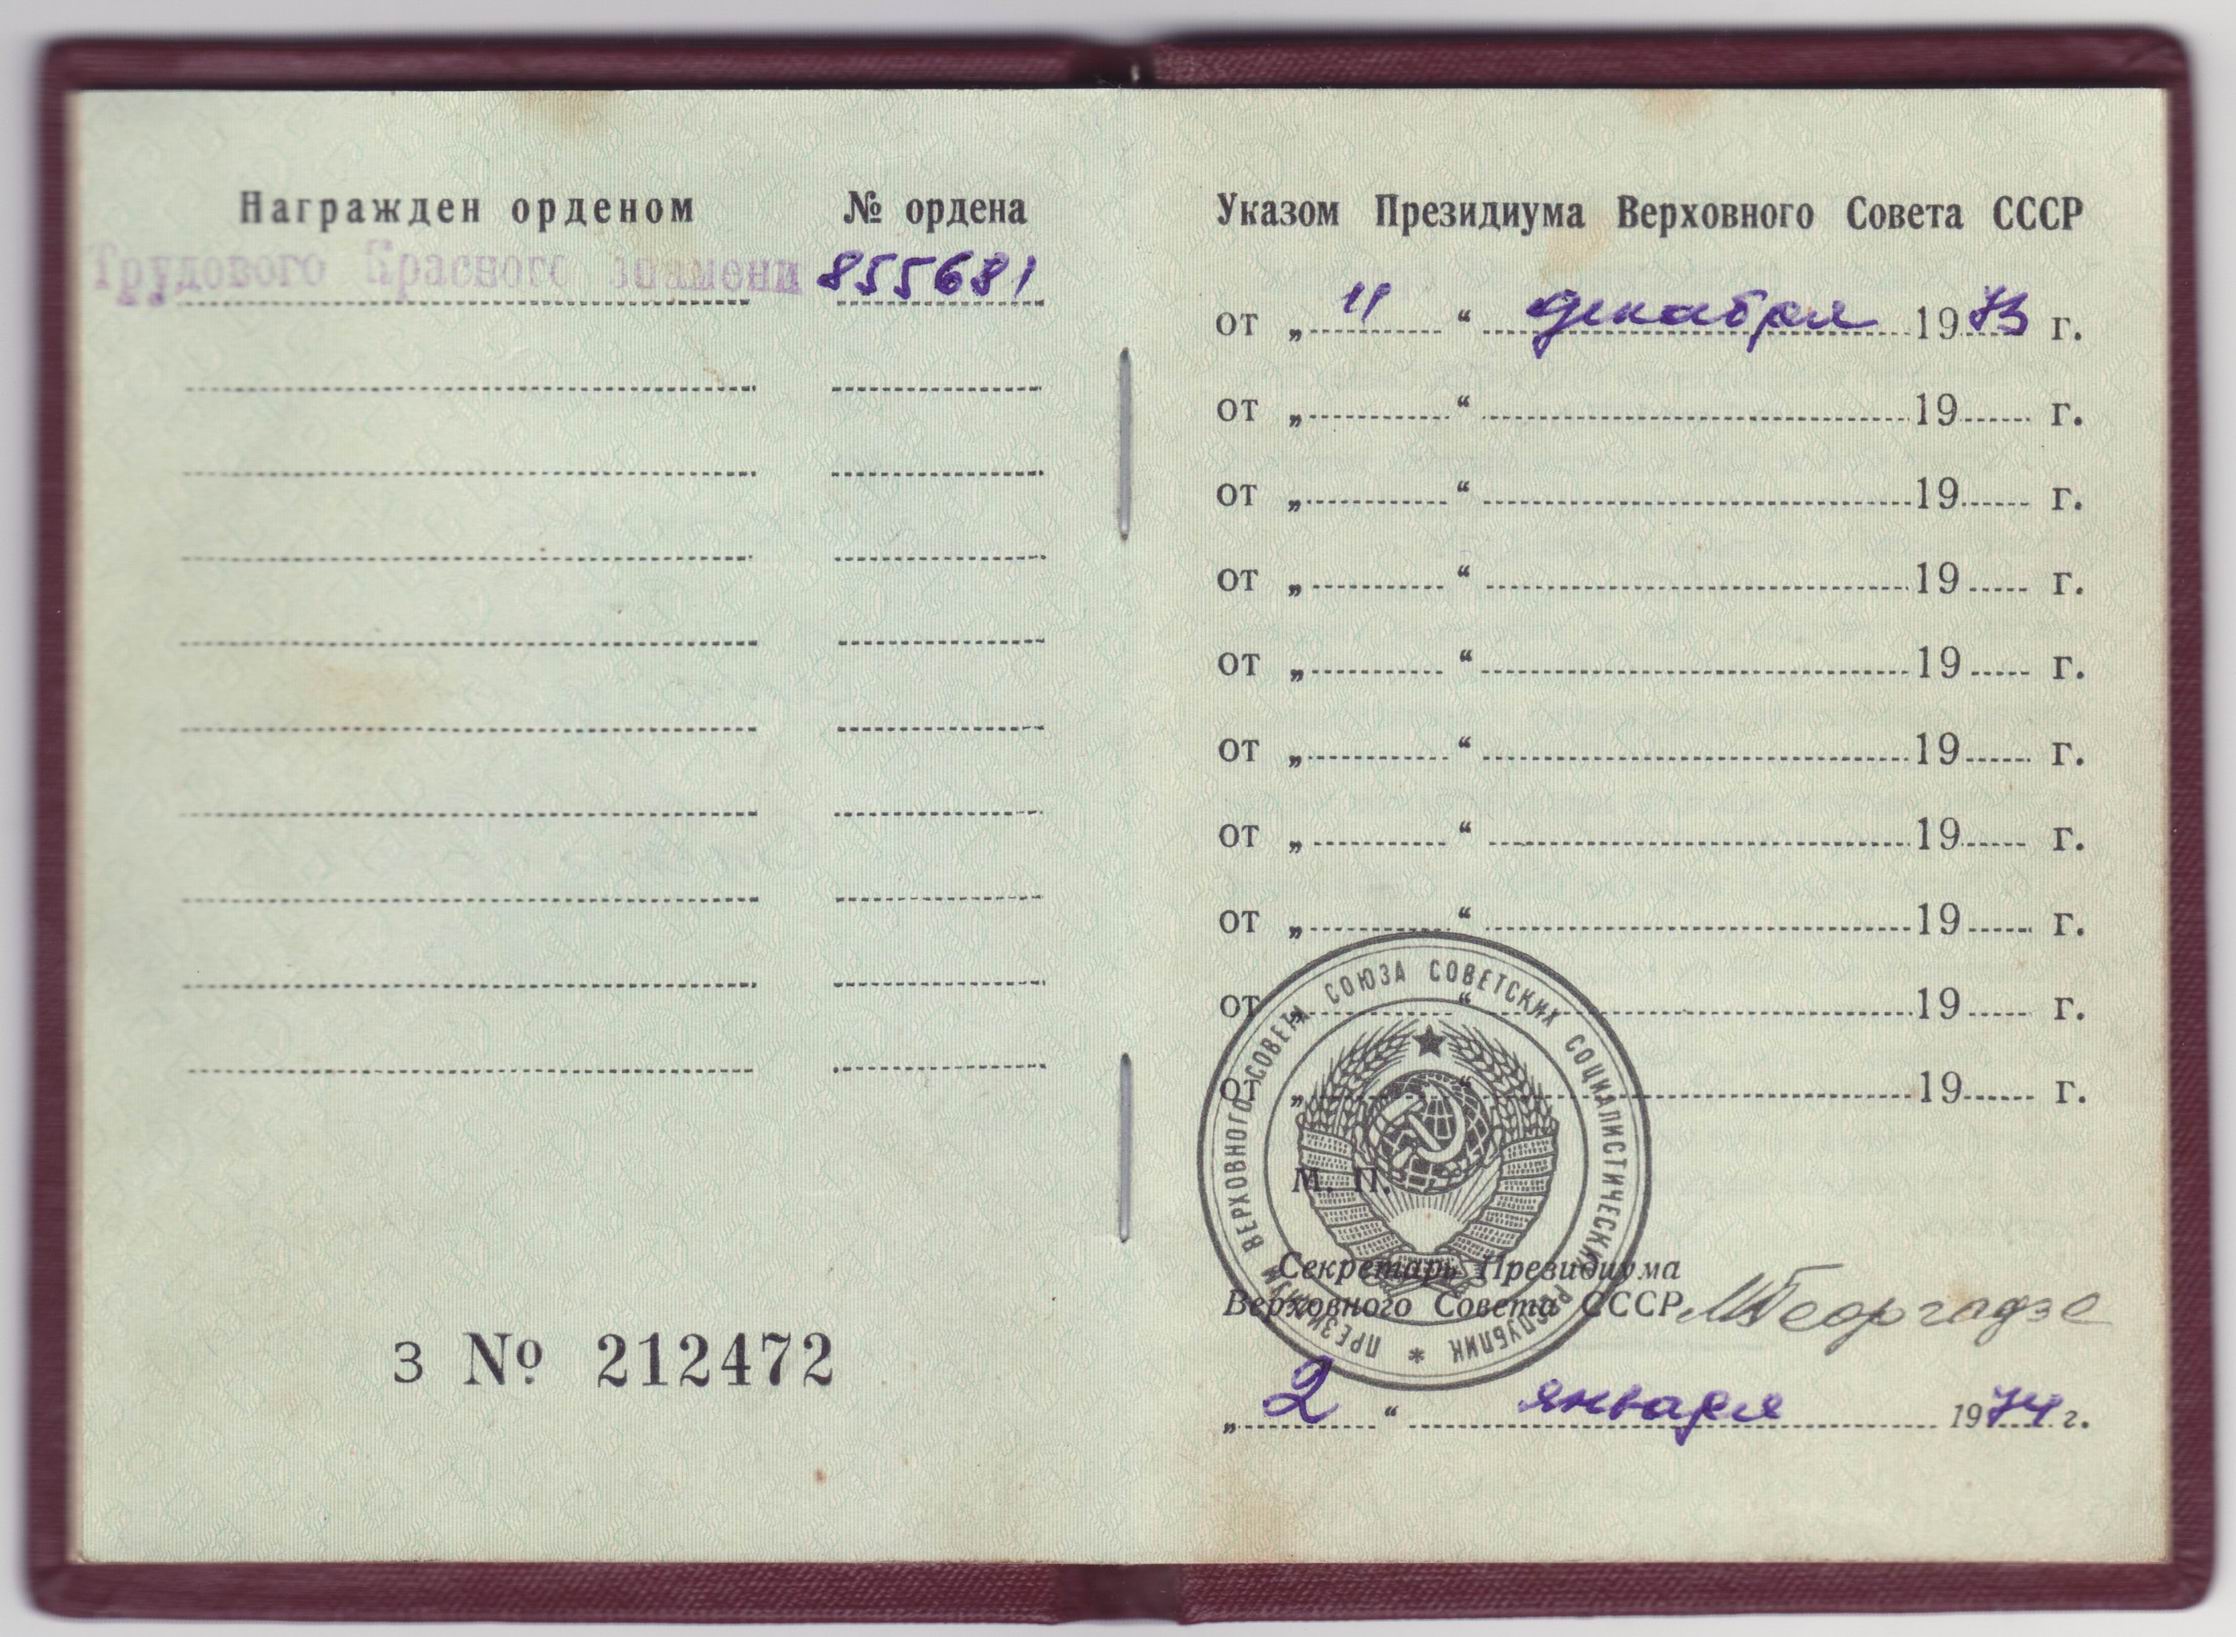 Награжден орденом № ордена
Трудового Красного знамени 855681
Указом Президиума Верховного Совета СССР
от „ 11 “ декабря 1973 г.
от „ “ 19 г.
от „ “ 19 г.
от „ “ 19 г.
от „ “ 19 г.
от „ “ 19 г.
от „ “ 19 г.
от „ “ 19 г.
от „ “ 19 г.
от „ “ 19 г.
ПРЕЗИДИУМ ВЕРХОВНОГО СОВЕТА СОЮЗА СОВЕТСКИХ СОЦИАЛИСТИЧЕСКИХ РЕСПУБЛИК *
М. П.
Секретарь Президиума
Верховного Совета СССР МГеоргадзе
„ 2 “ января 1974 г.
З № 212472